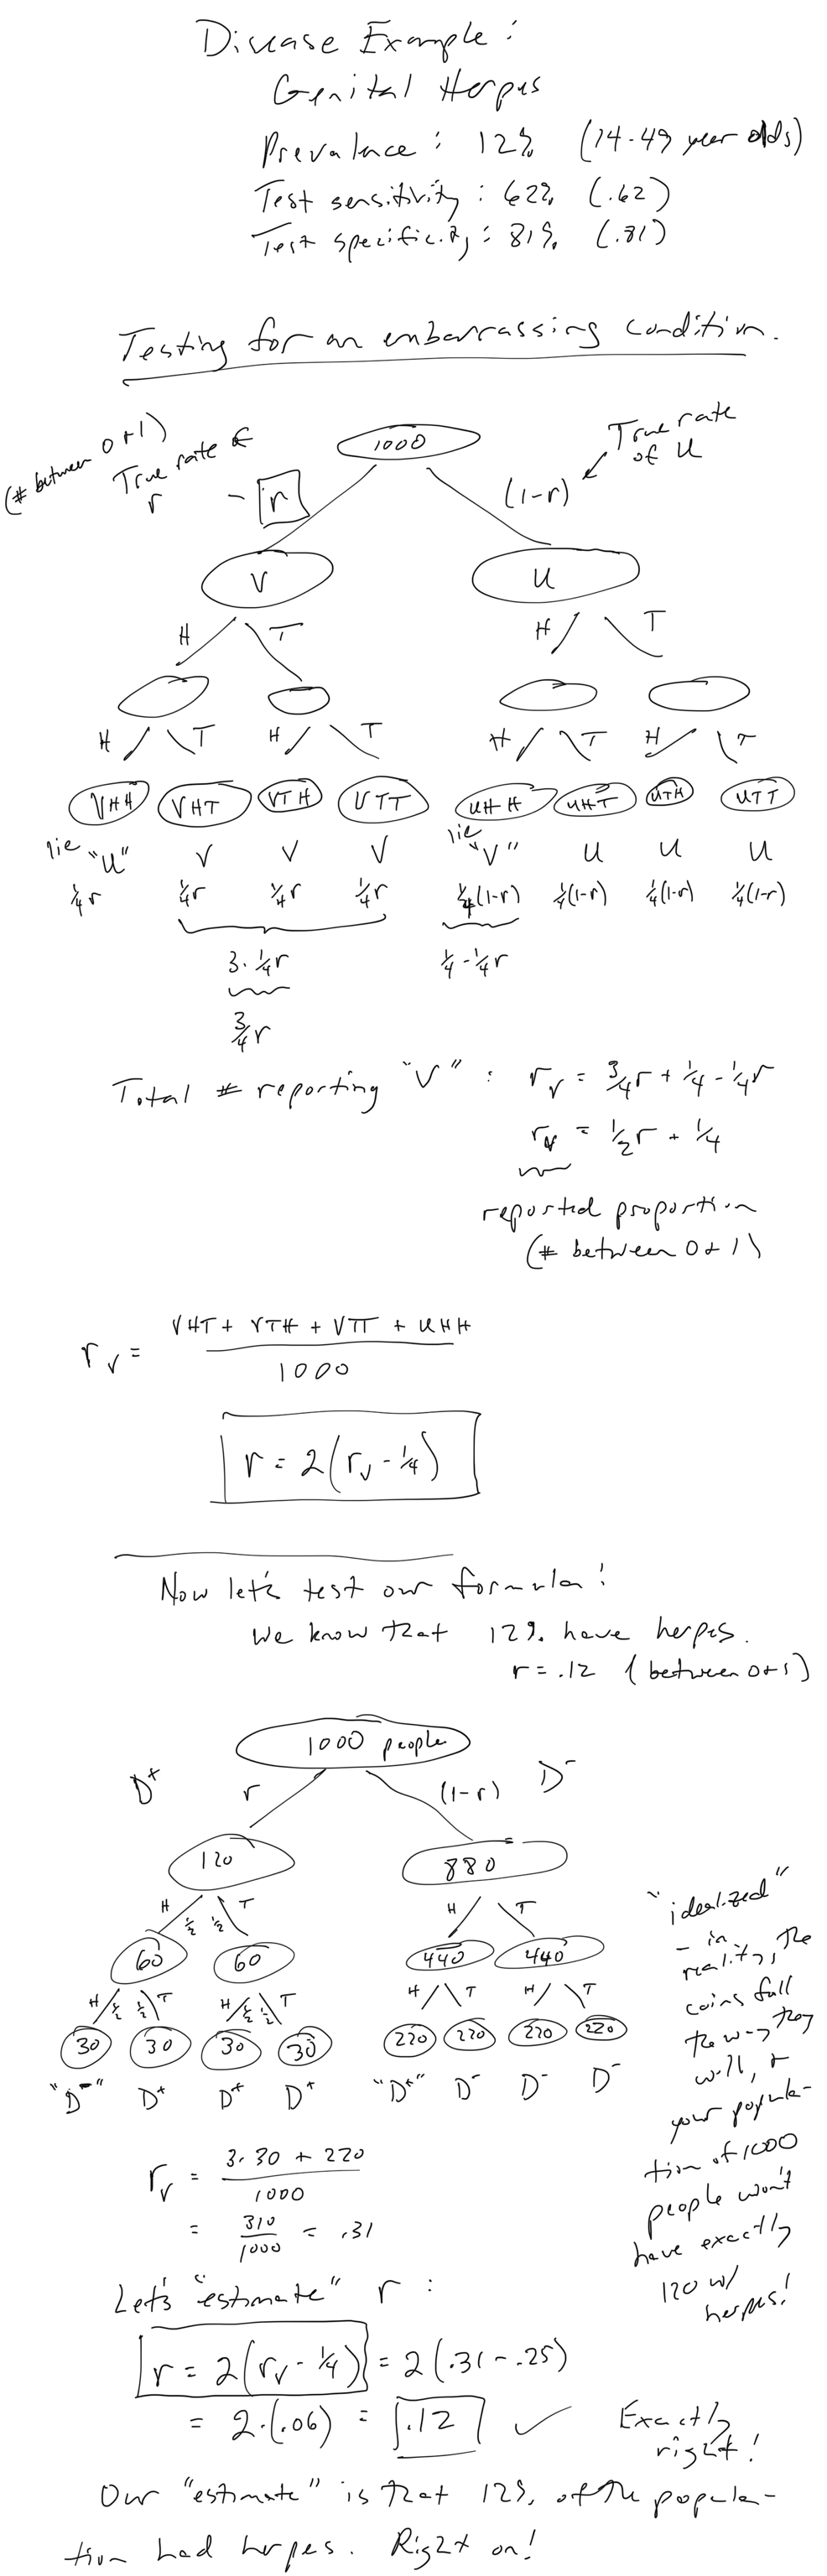 Disease Example:
Genital Herpes
Prevalence: 12% (14-49 year olds)
Test sensitivity: 62% (.62)
Test specificity: 81% (.81)
Testing for an embarrassing condition.
(# between 0+1)
True rate
r
1000
True rate
of U
r
(1-r)
V U
H T H T
H T H T H T H T
VHH VHT VTH VTT UHH UHT UTH UTT
lie "U" V V V lie "V" U U U
¼r ¼r ¼r ¼r ¼(1-r) ¼(1-r) ¼(1-r) ¼(1-r)
3·¼r ¼-¼r
¾r
Total # reporting "V" : r_V = ¾r + ¼ - ¼r
r_V = ½r + ¼
reported proportion
(# between 0+1)
r_V = VHT + VTH + VTT + UHH
1000
r = 2(r_V - ¼)
Now let's test our formula!
We know that 12% have herpes.
r = .12 (between 0+1)
1000 people
D+ r (1-r) D-
120 880
H ½ ½ T H T
60 60 440 440
H ½ ½ T H ½ ½ T H T H T
30 30 30 30 220 220 220 220
"D-" D+ D+ D+ "D+" D- D- D-
"idealized"
- in
reality, the
coins fall
the way they
will, +
your popula-
tion of 1000
people won't
have exactly
120 w/
herpes!
r_V = 3·30 + 220
1000
= 310
1000 = .31
Let's "estimate" r :
r = 2(r_V - ¼) = 2(.31-.25)
= 2·(.06) = .12 ✓ Exactly
right!
Our "estimate" is that 12% of the popula-
tion had herpes. Right on!